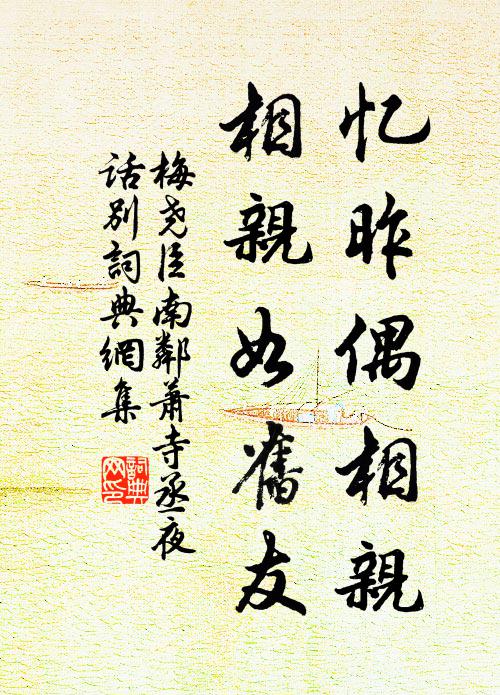 忆昨偶相親
相親如舊友
梅尧臣南鄰萧寺丞夜
话别詞典網集
詞典网印